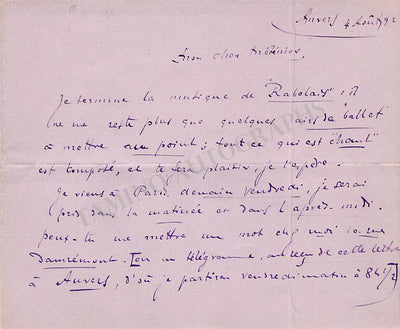 Anvers 4 Août 92
Mon cher Méténier
Je termine la musique de "Rabelais": il
ne me reste plus que quelques airs de "ballet"
à mettre au point; tout ce qui est "chant"
est composé, et te fera plaisir, je l'espère.
Je viens à Paris, demain vendredi, je serai
pris dans la matinée et dans l'après-midi.
peux-tu me mettre un mot chez moi 10 rue
Damrémont. [ou un télégramme, au reçu de cette lettre
à Anvers, d'où je partirai vendredi matin à 8h 1/2]
TAMINO AUTOGRAPHS